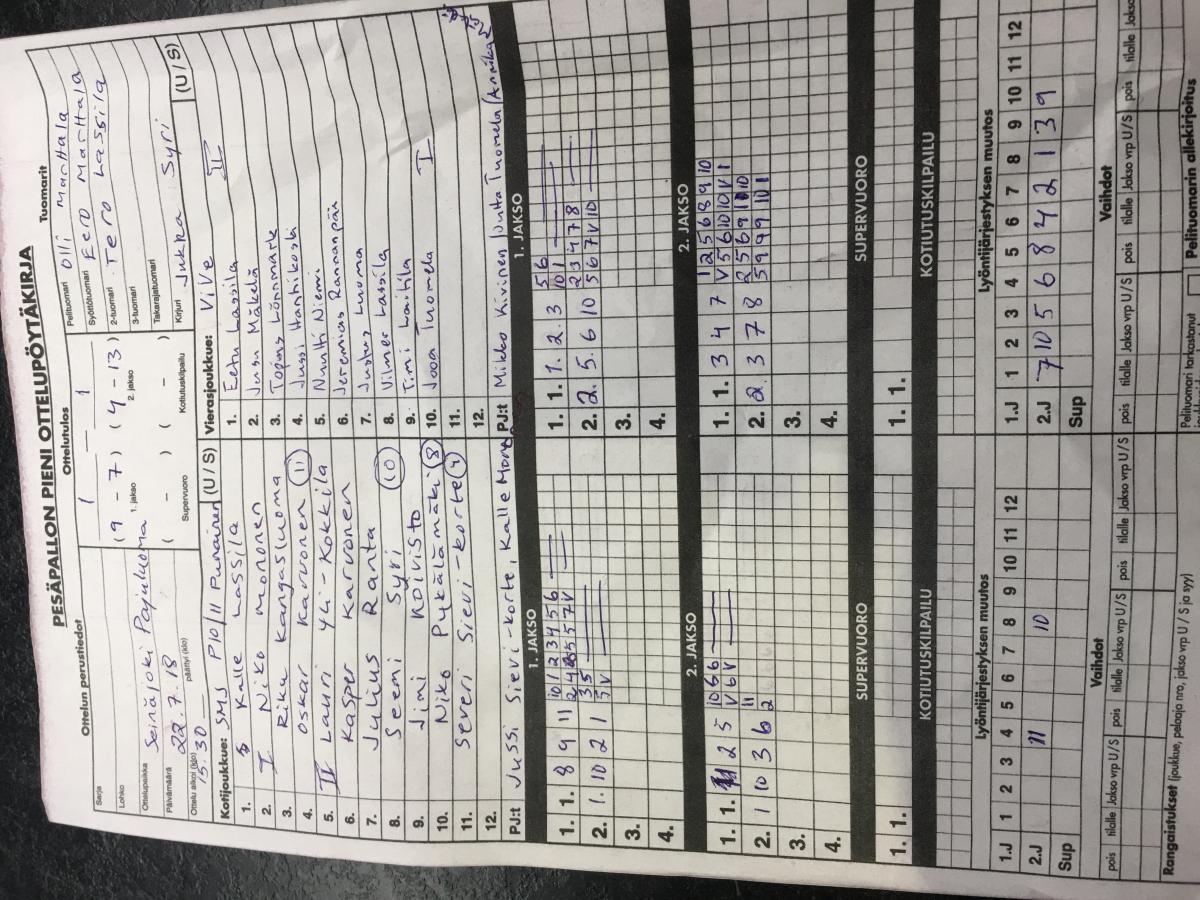 PESÄPALLON PIENI OTTELUPÖYTÄKIRJA
Ottelun perustiedot
Sarja
Lohko
Ottelupaikka Seinäjoki Pajuluoma
Päivämäärä 22.7.18
Ottelu alkoi (klo) 15.30 päättyi (klo)
Ottelutulos
1 - 1
(9 - 7) (4 - 13)
1. jakso 2. jakso
( - ) ( - )
Supervuoro Kotiutuskilpailu
Tuomarit
Pelituomari Olli Marttala
Syöttötuomari Eero Marttala
2-tuomari Tero Lassila
3-tuomari
Takarajatuomari
Kirjuri Jukka Syri
Kotijoukkue: SMJ P10/11 Punainen (U / S)
1. Kalle Lassila
2. I Niko Mononen
3. Riku Kangasluoma
4. Oskar Karvonen (11)
5. II Lauri Yli-Kokkila
6. Kasper Karvonen
7. Julius Ranta
8. Seemi Syri (10)
9. Jimi Koivisto
10. Niko Pykälämäki (8)
11. Severi Sievi-Korte (4)
12.
PJ:t Jussi Sievi-Korte, Kalle
Vierasjoukkue: ViVe (U / S)
1. Eetu Lassila II
2. Jusu Mäkelä
3. Topias Lönnmark
4. Jussi Hanhikoski
5. Nuutti Niemi
6. Jeremias Rannanpää
7. Justus Luoma
8. Vilmer Lassila
9. Timi Laitila
10. Jooa Tuomela I
11.
12.
PJ:t Mikko Kivinen, Jutta Tuomela (Annika
1. JAKSO
1. 1. 8 9 11 10 1 2 3 4 5 6
2. 1. 10 2 1 3 5
3.
4.
1. JAKSO
1. 1. 1. 2. 3 5 6
10 1
2. 2. 5. 6 10 2 3 4 7 8
5 6 7 V 10
3.
4.
2. JAKSO
1. 1. 2 5 10 6 6
V 6 V
2. 1 10 3 6 11
2
3.
4.
2. JAKSO
1. 1. 3 4 7 1 2 5 6 8 9 10
V 5 6 10 10 V 1
2. 2. 3 7 8 2 5 6 9
5 9 9 10 1
3.
4.
SUPERVUORO
1. 1.
SUPERVUORO
1. 1.
KOTIUTUSKILPAILU
KOTIUTUSKILPAILU
Lyöntijärjestyksen muutos
1.J 1 2 3 4 5 6 7 8 9 10 11 12
2.J 11 10
Sup
Lyöntijärjestyksen muutos
1.J 1 2 3 4 5 6 7 8 9 10 11 12
2.J 7 10 5 6 8 4 2 1 3 9
Sup
Vaihdot
pois tilalle Jakso vrp U/S pois tilalle Jakso vrp U/S pois tilalle Jakso vrp U/S
Vaihdot
pois tilalle Jakso vrp U/S pois tilalle Jakso vrp U/S pois tilalle Jakso
Rangaistukset (joukkue, pelaaja nro, jakso vrp U / S ja syy)
Pelituomari tarkastanut
Pelituomarin allekirjoitus